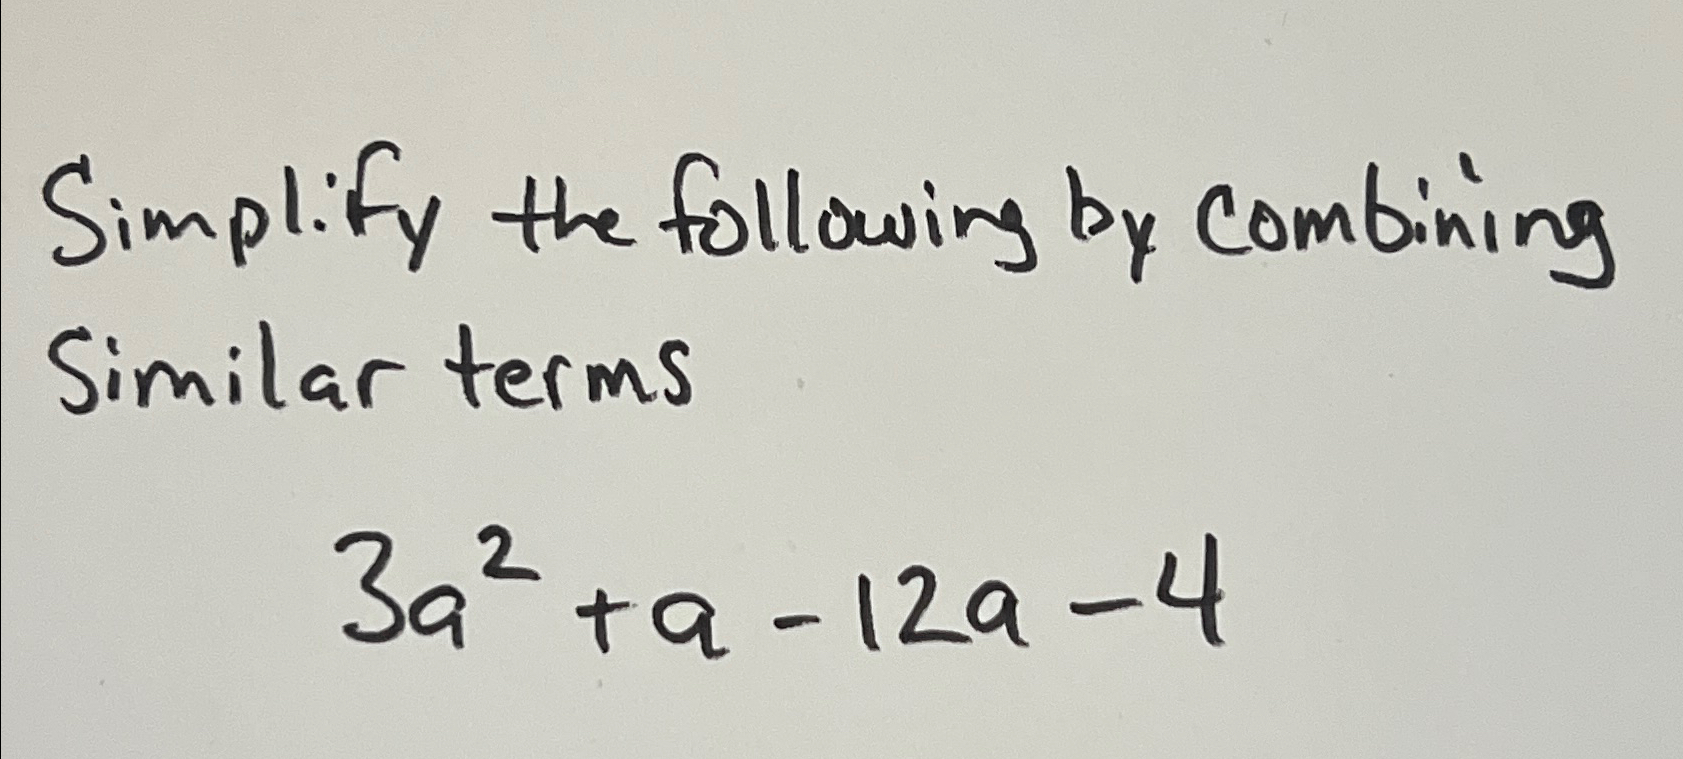 Simplify the following by combining
Similar terms
3a² + a - 12a - 4